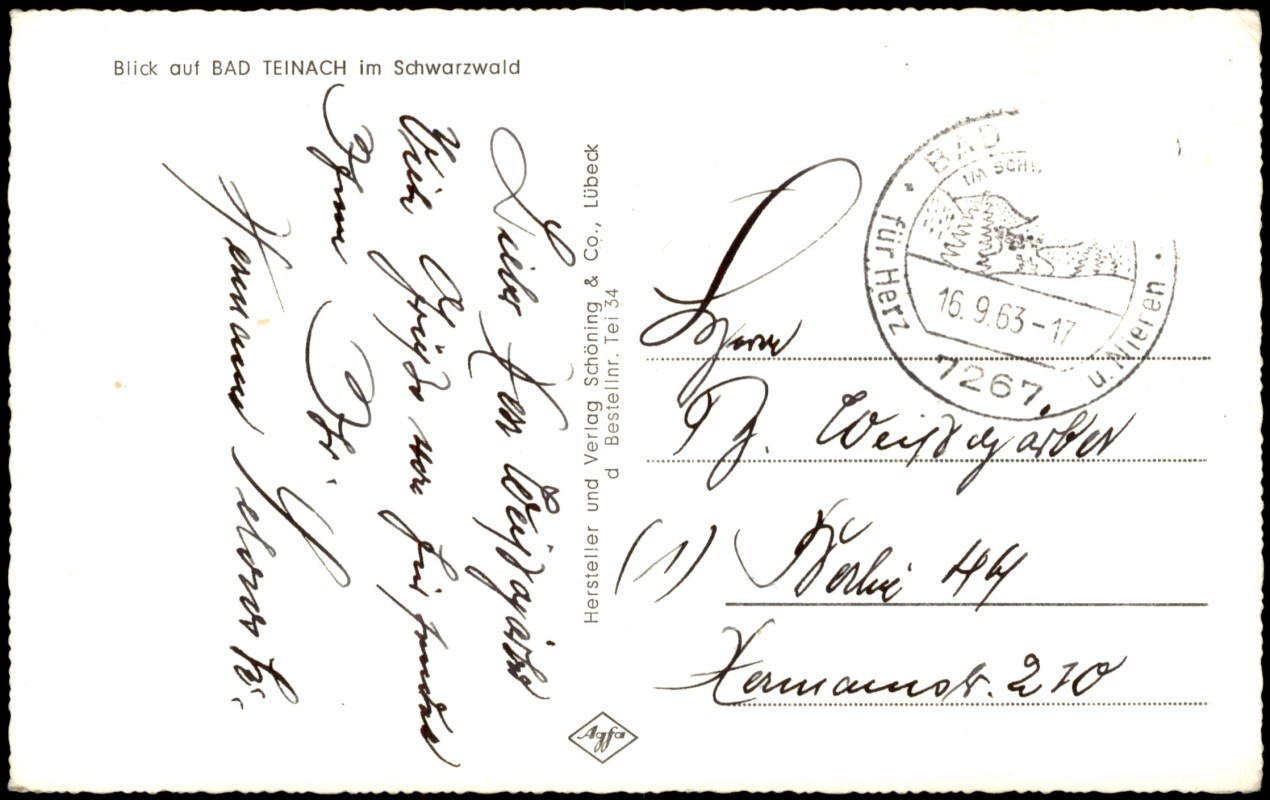 Blick auf BAD TEINACH im Schwarzwald
Lieber Herr Weißgärber
Viele Grüße von
Ihnen Ihr
Hermann
Hersteller und Verlag Schöning & Co., Lübeck
d Bestellnr. Tei 34
Agfa
BAD
IM SCHW
für Herz
16.9.63-17
u. Nieren
7267
Herrn
Weißgärber
(1) Berlin 44
Hermannstr. 210